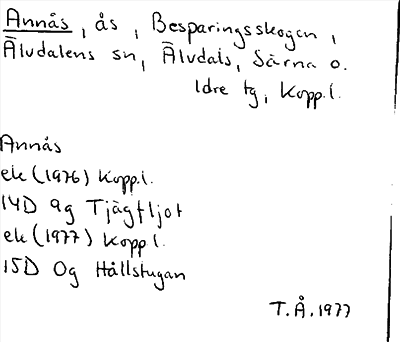 Annås, ås, Besparingsskogen,
Älvdalens sn, Älvdals, Särna o.
Idre tg, Kopp.l.
Annås
ek (1976) Kopp.l.
14D 9g Tjägfljot
ek (1977) Kopp l.
15D 0g Hållstugan
T.Å. 1977